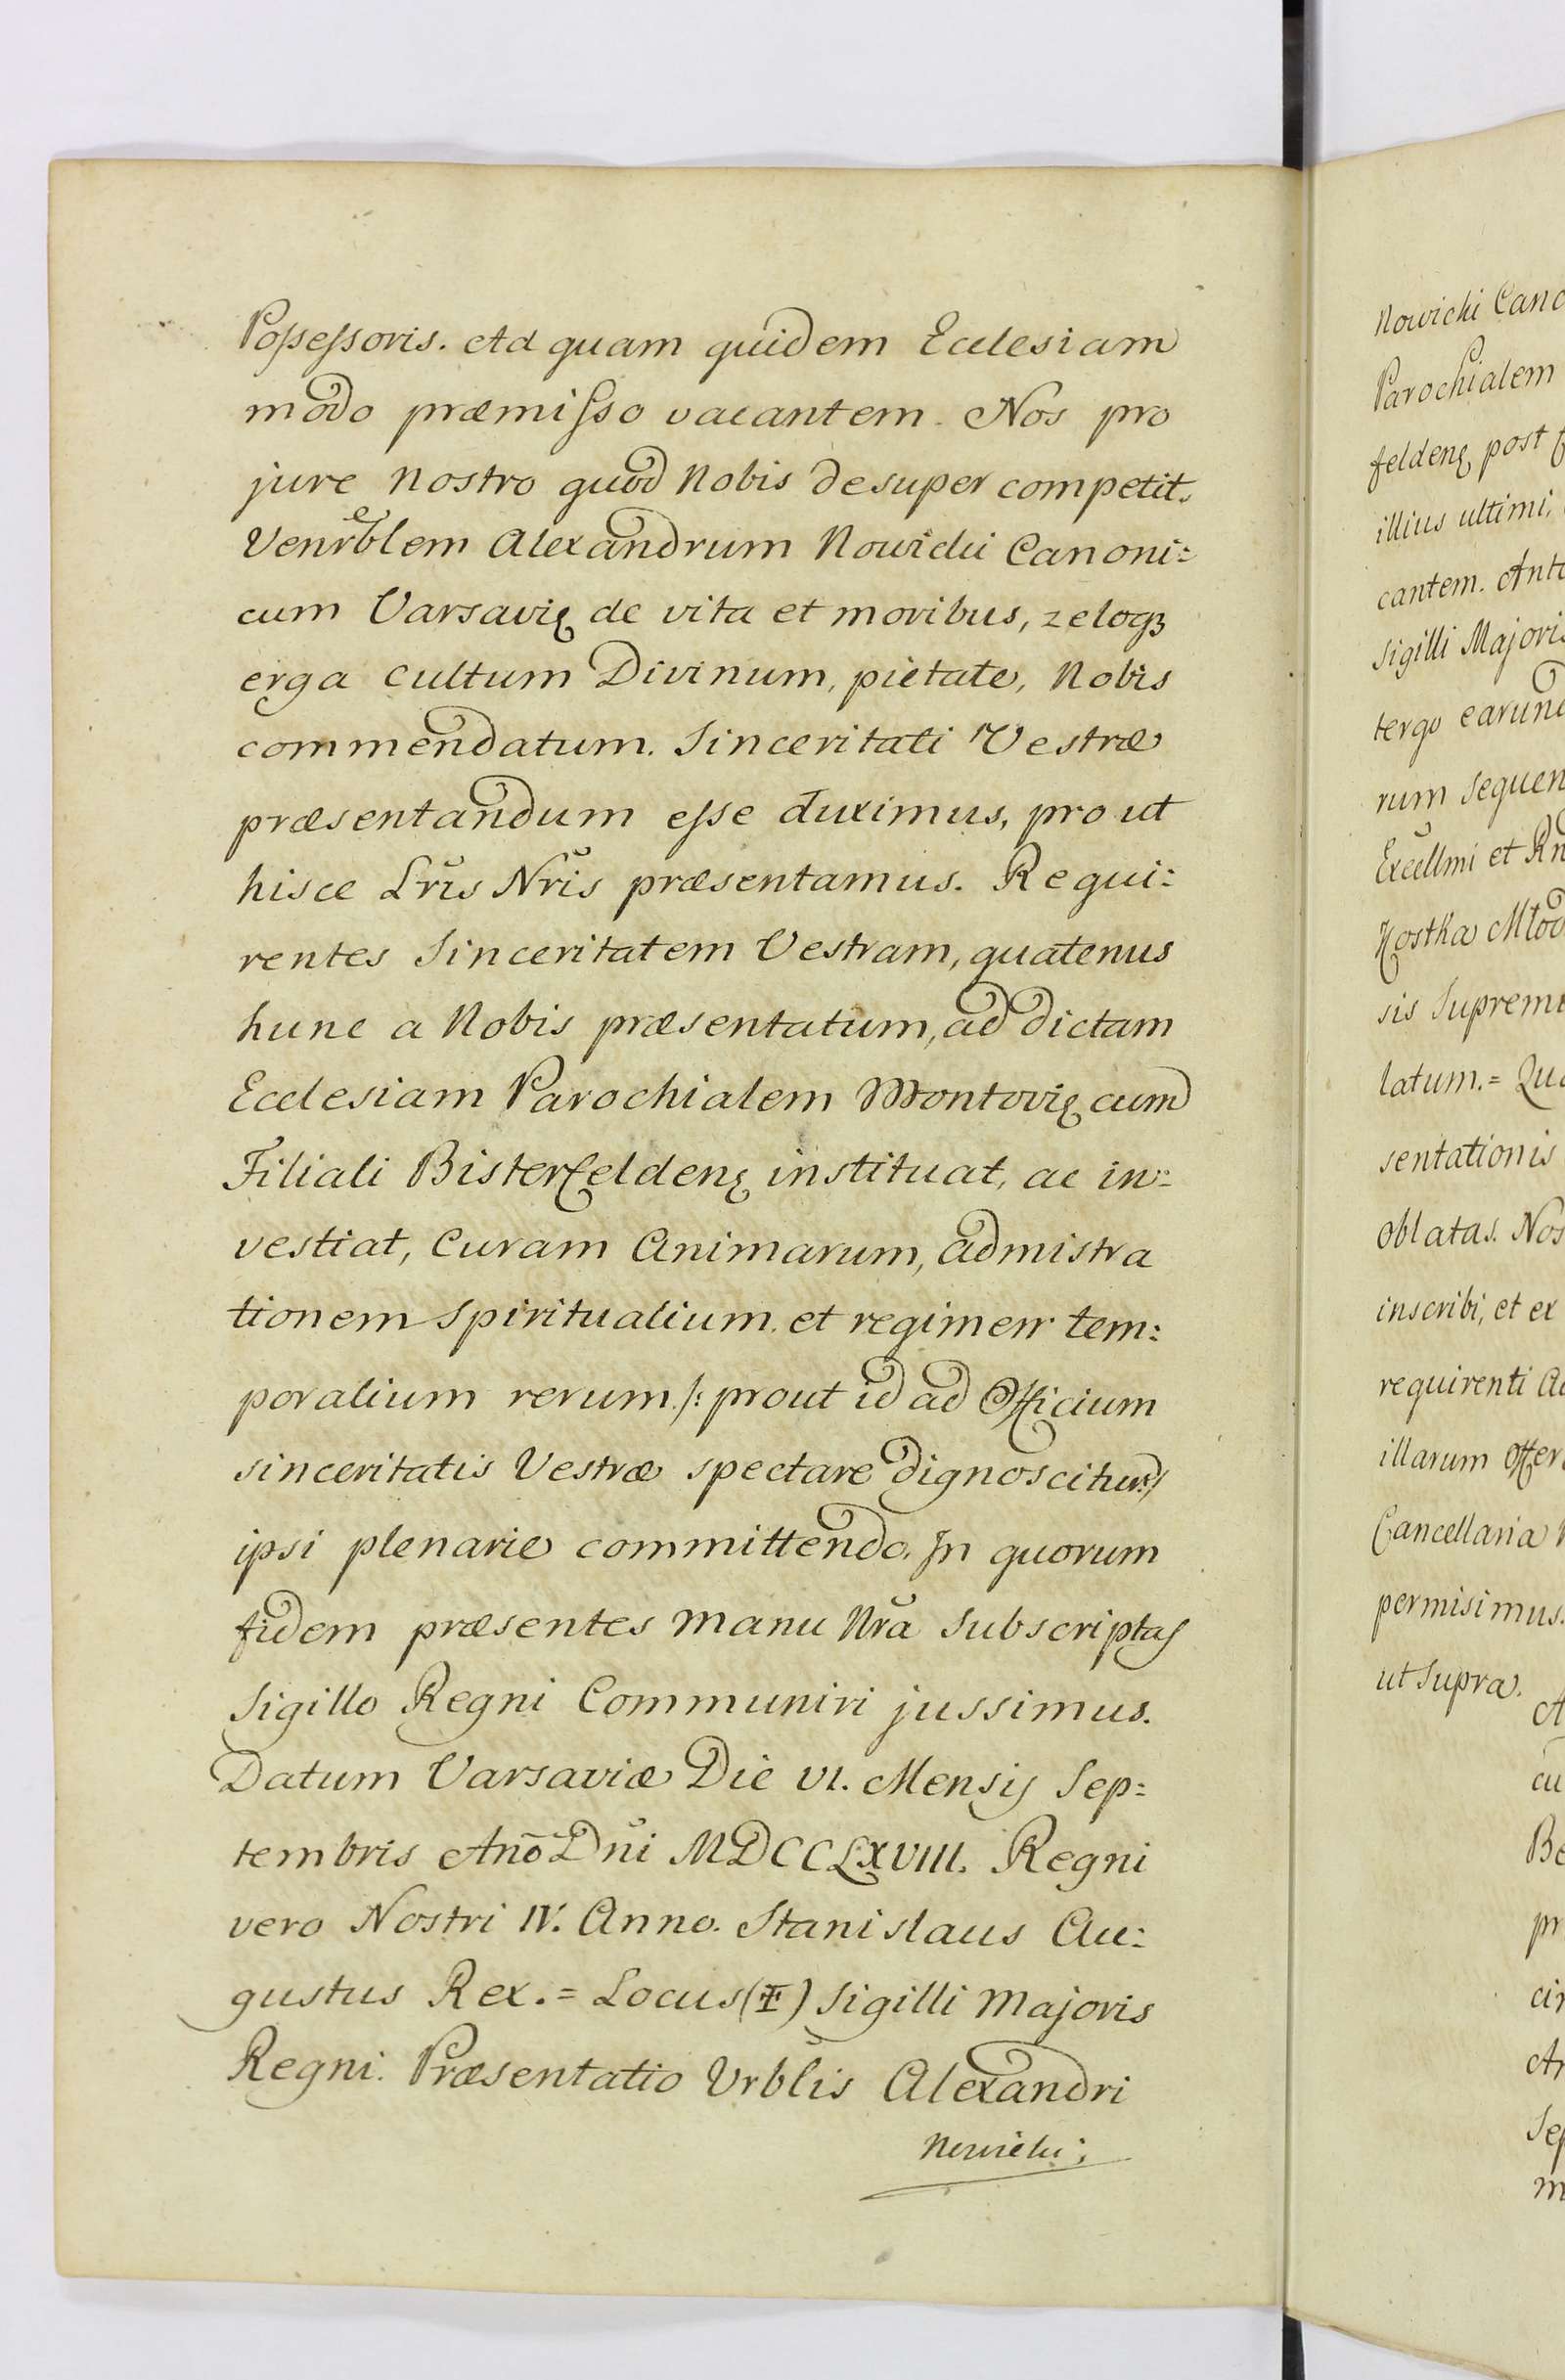 Possessoris. Ad quam quidem Ecclesiam
modo præmisso vacantem. Nos pro
jure nostro quod Nobis desuper competit.
Venrblem Alexandrum Nowicki Canoni:
cum Varsavię de vita et moribus, zeloqꝫ
erga cultum Divinum, pietate, Nobis
commendatum. Sinceritati Vestræ
præsentandum esse duximus, pro ut
hisce Lris Nris præsentamus. Requi:
rentes Sinceritatem Vestram, quatenus
hunc a Nobis præsentatum, ad dictam
Ecclesiam Parochialem Montovię cum
Filiali Bisterfeldenę instituat, ac in:
vestiat, Curam Animarum, admistra
tionem spiritualium et regimen tem:
poralium rerum /: prout id ad Officium
sinceritatis Vestræ spectare dignoscitur :/
ipsi plenarie committendo. In quorum
fidem præsentes manu Nra subscriptas
Sigillo Regni Communiri jussimus.
Datum Varsaviæ Die VI. Mensis Sep:
tembris Anõ Dni MDCCLXVIII. Regni
vero Nostri IV. Anno. Stanislaus Au:
gustus Rex. = Locus (‡) Sigilli Majoris
Regni. Præsentatio Vrblis Alexandri
Nowicki;
Nowicki
Parochialem
feldenę post
illius ultimi,
cantem.
Sigilli Majoris
tergo
rum
Excellmi et
Kostka
sis
latum. =
sentationis
oblatas. Nos
inscribi, et ex
requirenti
illarum
Cancellaria
permisimus.
ut supra.